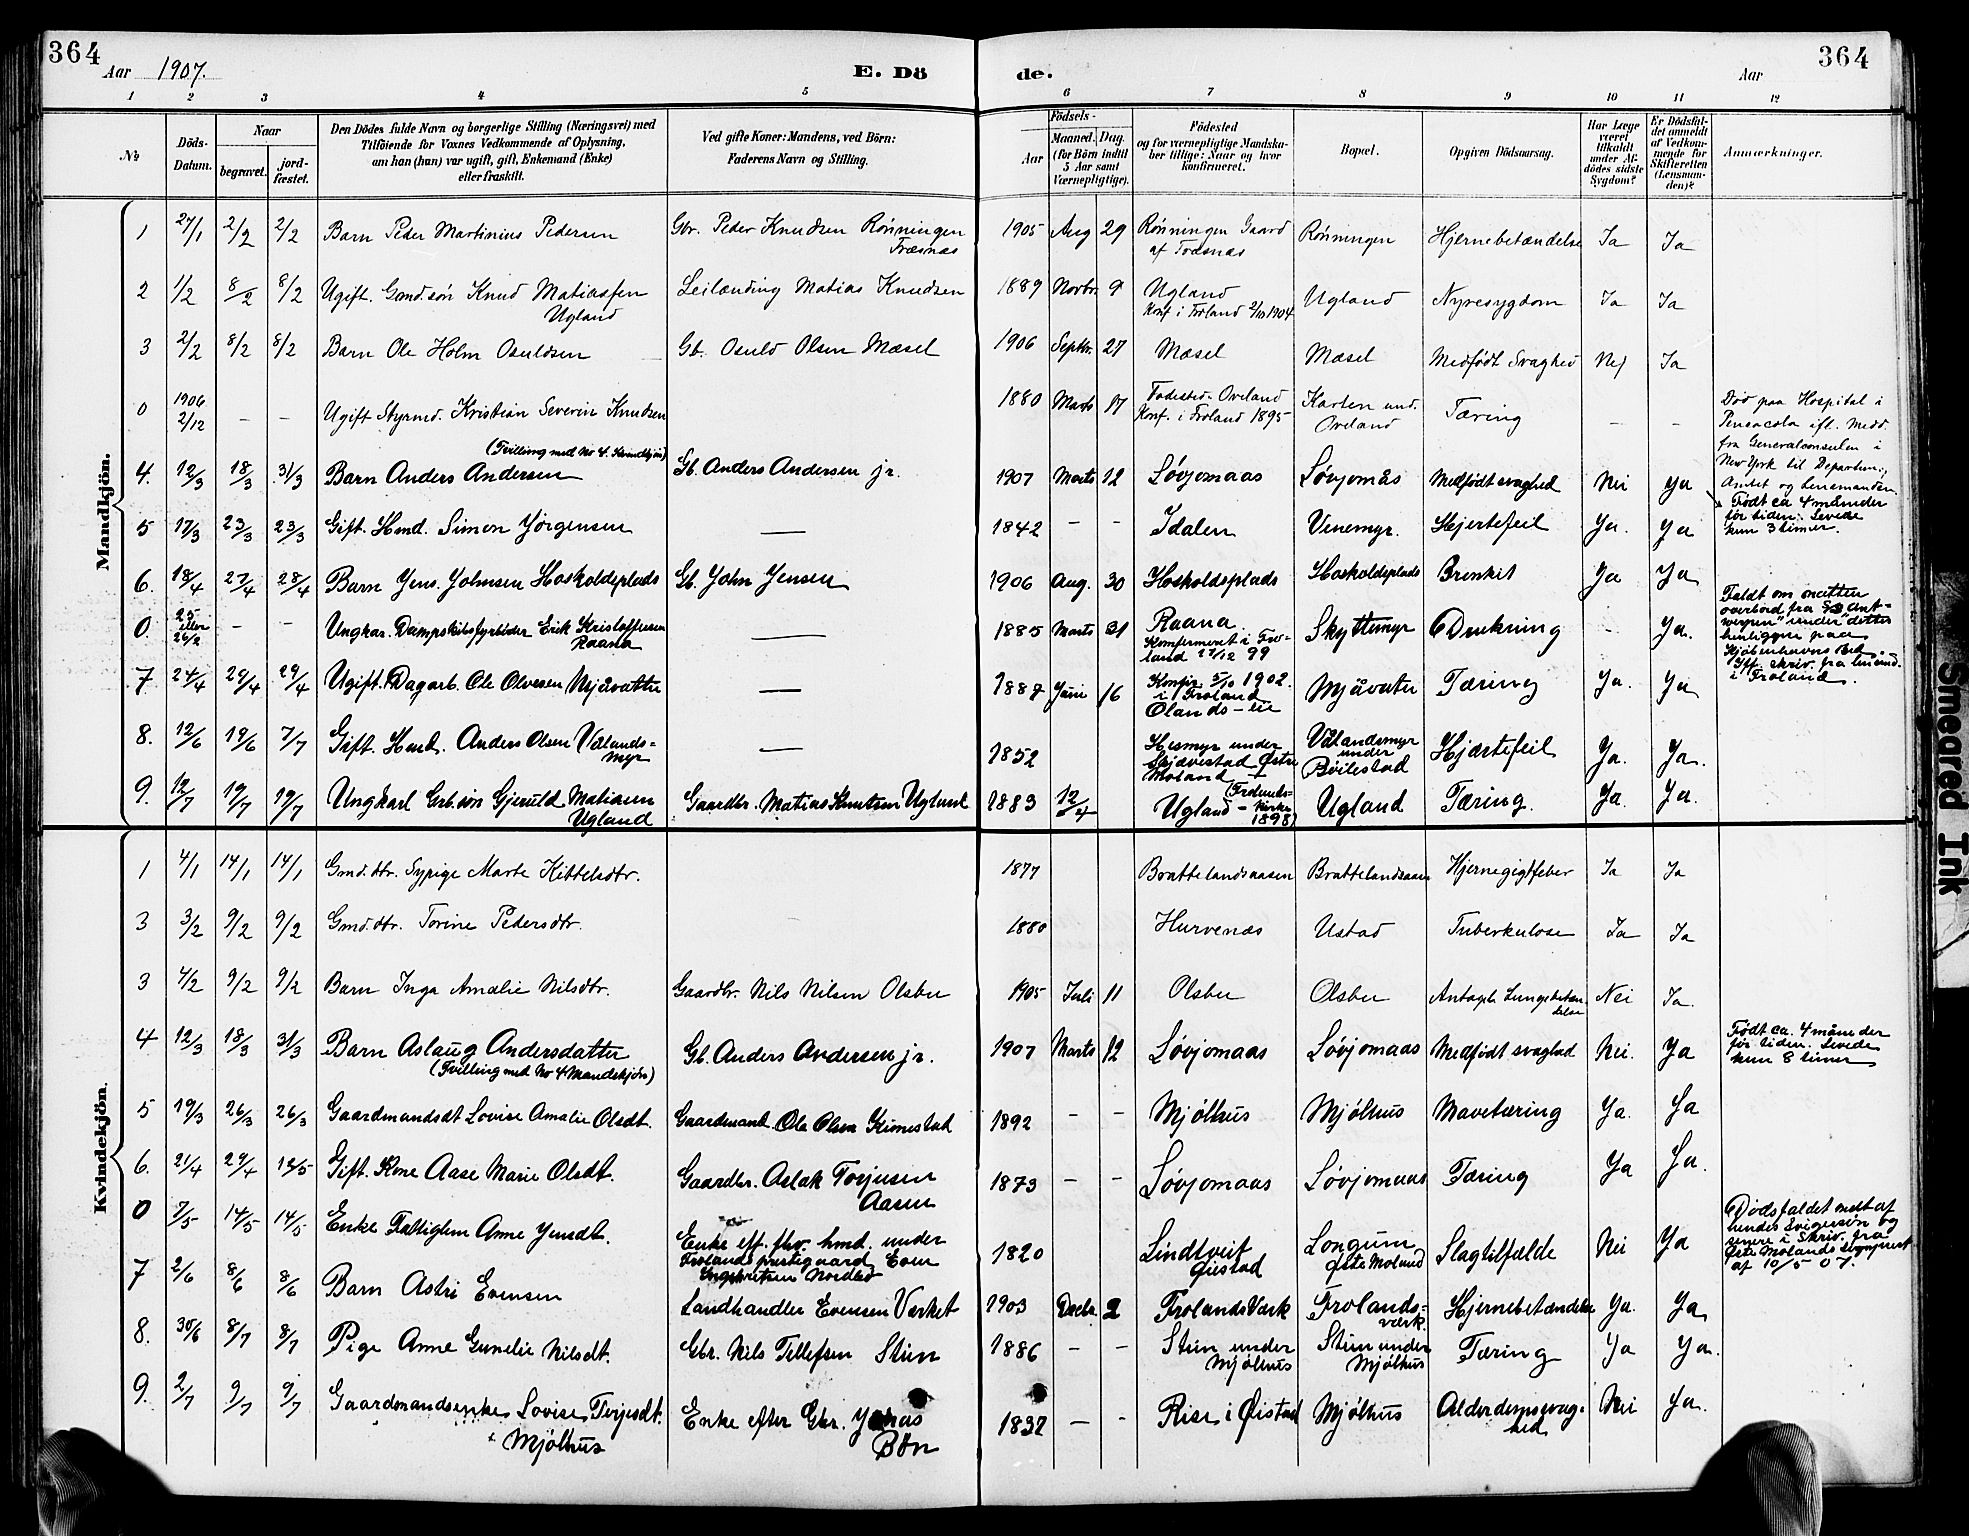 364
Aar 1907.
E. Dö
de.
Aar
364
1 2 3 4 5 6 7 8 9 10 11 12
No
Döds-Datum.
Naar
begravet.
jord-fæstet.
Den Dödes fulde Navn og borgerlige Stilling (Næringsvei) med
Tilföiende for Voxnes Vedkommende af Oplysning,
om han (hun) var ugift, gift, Enkemand (Enke)
eller fraskilt.
Ved gifte Koner: Mandens, ved Börn:
Faderens Navn og Stilling.
Födsels-
Aar
Maaned.
Dag.
(for Börn indtil
5 Aar samt
Værnepligtige).
Födested
og for værnepligtige Mandska-
ber tillige: Naar og hvor
konfirmeret.
Bopæl.
Opgiven Dödsaarsag.
Har Læge
været
tilkaldt
under Af-
dödes sidste
Sygdom?
Er Dödsfal-
det anmeldt
af Vedkom-
mende for
Skifteretten
(Lensman-
den)?
Anmærkninger.
Mandkjön.
1 27/1 2/2 2/2 Barn Peder Martinius Pedersen Gbr. Peder Knudsen Rönningen 1905 Aug 29 Rönningen Gaard Rönningen Hjernebetændelse Ja Ja
Træsnæs af Træsnæs
2 1/2 8/2 8/2 Ugift. Gmd.sön Knud Matiassen Leilænding Matias Knudsen 1889 Novbr. 9 Ugland Ugland Nyresygdom Ja Ja
Ugland Konf i Froland 2/10 1904
3 2/2 8/2 8/2 Barn Ole Holm Osuldsen Gb. Osuld Olsen Mæsel 1906 Septbr. 27 Mæsel Mæsel Medfödt Svaghed Nej Ja
0 1906 2/12 – – Ugift Styrmd. Kristian Severin Knudsen 1880 Marts 17 Fødested. Oveland Karten und. Tæring – –
Konf. i Froland 1895 Oveland
Död paa Hospital i
Pensacola ifl. Medd.
fra Generalconsulen i
New York til Departem.,
Amtet og Lensmanden.
(Tvilling med No 4. Kvindkjön)
4. 12/3 18/3 31/3 Barn Anders Andersen Gb. Anders Andersen jr. 1907 Marts 12 Løvjomaas Løvjomås Medfödt svaghed Nei Ja
Født ca 4 måneder
för tiden. Levede
kun 3 timer.
5 17/3 23/3 23/3 Gift. Hmd. Simon Jörgensen — 1842 – – Idalen Venemyr. Hjertefeil Ja. Ja
6. 18/4 27/4 28/4 Barn Jens Johnsen Haskoldsplads Gb. John Jensen 1906 Aug. 30 Haskoldsplads Haskoldsplads Bronkit Ja Ja
0 25 eller 26/2 – – Ungkar. Dampskibsfyrböder Erik Kristoffersen — 1885 Marts 31 Raana. Skyttemyr Drukning – Ja.
Raana Konfermeret i Fro-
land 27/12 99
Faldt om natten
overbord fra S/S Ant-
werpen" under dettes
henliggen paa
Kjöbenhavns Red.
Iflg. skriv. fra lensmd.
i Froland.
7 24/4 29/4 29/4 Ugift. Dagarb. Ole Olvesen Mjåvatn — 1887 Juni 16 Konfir. 5/10 1902. Mjåvatn Tæring Ja. Ja
i Froland
Olands-lie
8. 12/6 19/6 7/7 Gift. Hmd. Anders Olsen Vælands- — 1852 Hesmyr under Vælandsmyr Hjærtefeil Ja. Ja.
myr Skjævestad Østre under
Moland Böilestad
9. 12/7 19/7 19/7 Ungkarl Grb.sön Gjeruld Matiasen Gaardbr. Matias Knutsen Ugland 1883 12/4 Ugland – (Frolands- Ugland Tæring. Ja. Ja.
Ugland Kirke 1898)
Kvindekjön.
1 4/1 14/1 14/1 Gmd.dtr. Sypige Marte Kittelsdtr. 1877 Brattelandsaasen Brattelandsaasen Hjernegigtfeber Ja Ja
3 3/2 9/2 9/2 Gmd.dtr. Torine Pedersdtr. 1880 Hurvenæs Ustad Tuberkulose Ja Ja
3 4/2 9/2 9/2 Barn Inga Amalie Nilsdtr. Gaardbr. Nils Nilsen Olsbu 1905 Juli 11 Olsbu Olsbu Antagel. Lungebetæn- Nei Ja
delse
4 12/3 18/3 31/3 Barn Aslaug Andersdatter Gb. Anders Andersen jr. 1907 Marts 12 Løvjomaas Løvjomaas Medfödt svaghed Nei. Ja
(Tvilling med No 4 Mandskjön)
Født ca. 4 måneder
för tiden. Levede
kun 8 timer
5 19/3 26/3 26/3 Gaardmandsdt Lovise Amalie Olsdt. Gaardmand. Ole Olsen Kimestad 1892 – – Mjölhus Mjölhus Mavetæring Ja. Ja
6. 21/4 29/4 12/5 Gift. Kone Aase Marie Olsdt. Gaardbr. Aslak Torjusen 1873 – – Løvjomaas Løvjomaas Tæring Ja Ja.
Aasen
0 7/5 14/5 14/5 Enke Fattiglem Anne Jensdt. Enke eft. fhv. hmd. under 1820 Lindtveit Longum Slagtilfælde Nei Ja
Frolands prestegaard Even Øiestad Østre Moland
Ingebretsen Nordbö
Dödsfaldet meldt af
hendes svigersön og
senere i Skriv. fra
Østre Molands sogneprest
af 10/5 07.
7 2/6 8/6 8/6 Barn Astri Evensen Landhandler Evensen Værket 1903 Decbr. 2 Frolands Værk Frolands- Hjernebetændelse Ja. Ja
værk.
8. 30/6 8/7 8/7 Pige Anne Gunelie Nilsdt. Gbr. Nils Tellefsen Stien 1886 – – Stien under Stien under Tæring Ja Ja.
Mjölhus Mjölhus
9. 2/7 9/7 9/7 Gaardmandsenke Lovise Terjesdt. Enke efter Gbr. Jonas 1832 – – Rise i Øistad Mjölhus Alderdomssvag- Nei Ja.
Mjölhus Bön hed
Smeared Ink